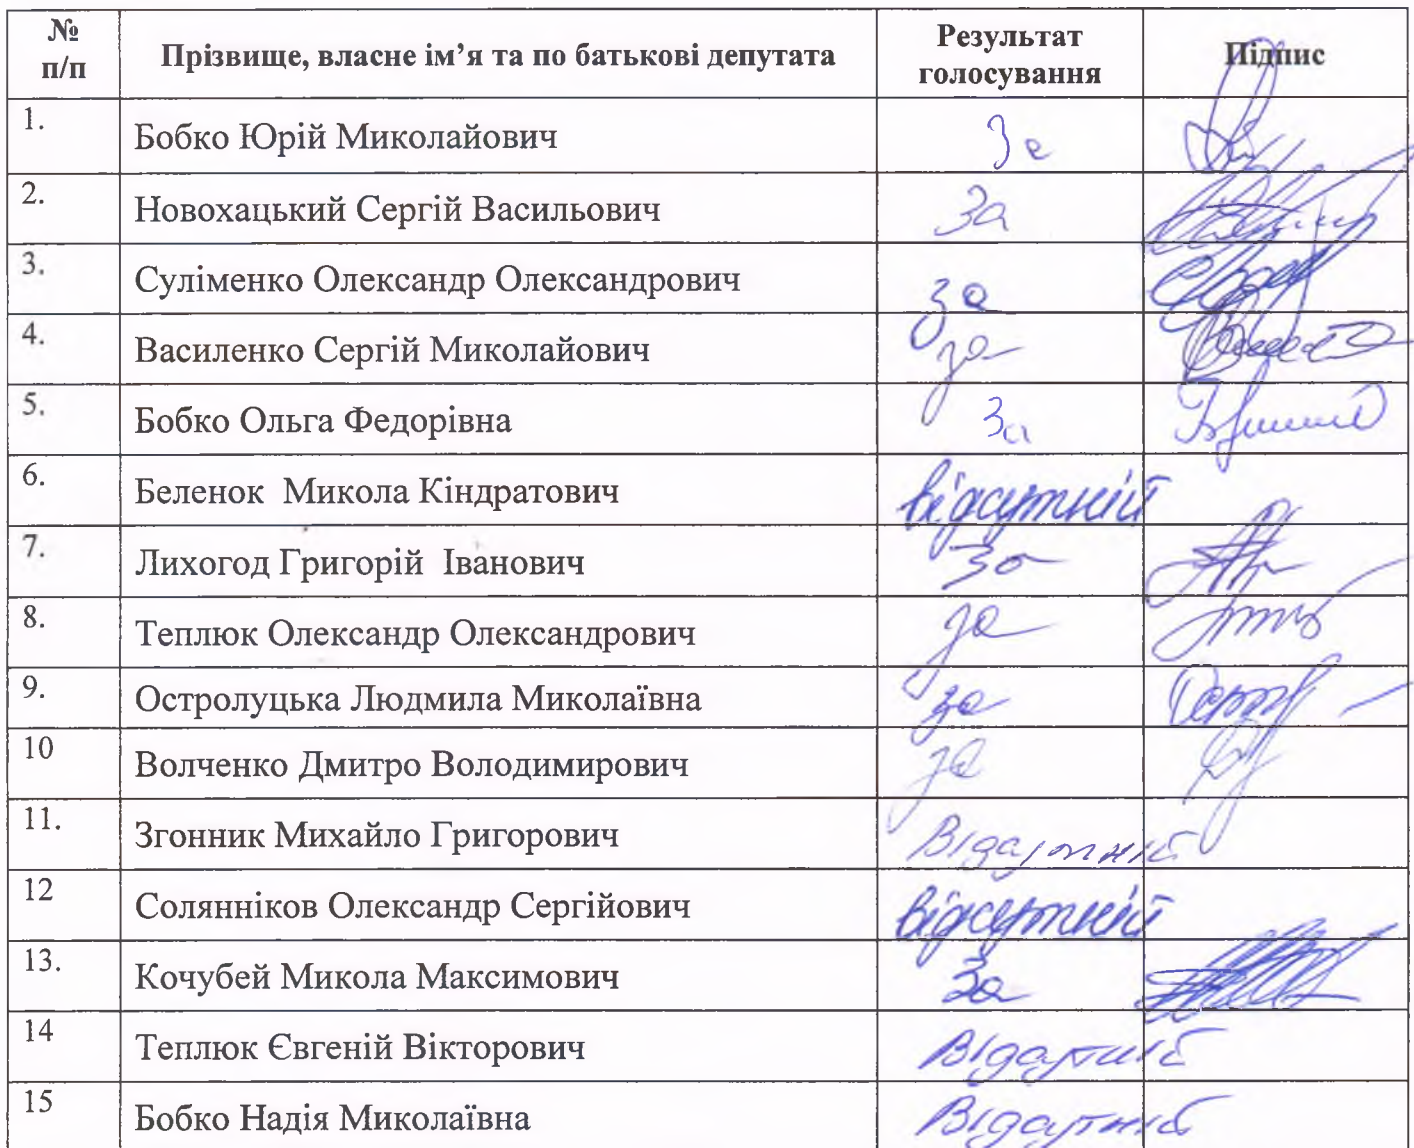 № п/п Прізвище, власне ім’я та по батькові депутата Результат голосування Підпис
1. Бобко Юрій Миколайович За
2. Новохацький Сергій Васильович За
3. Суліменко Олександр Олександрович за
4. Василенко Сергій Миколайович за
5. Бобко Ольга Федорівна За
6. Беленок Микола Кіндратович відсутній
7. Лихогод Григорій Іванович За
8. Теплюк Олександр Олександрович за
9. Остролуцька Людмила Миколаївна за
10 Волченко Дмитро Володимирович за
11. Згонник Михайло Григорович Відсутній
12 Солянніков Олександр Сергійович відсутній
13. Кочубей Микола Максимович За
14 Теплюк Євгеній Вікторович Відсутній
15 Бобко Надія Миколаївна Відсутній